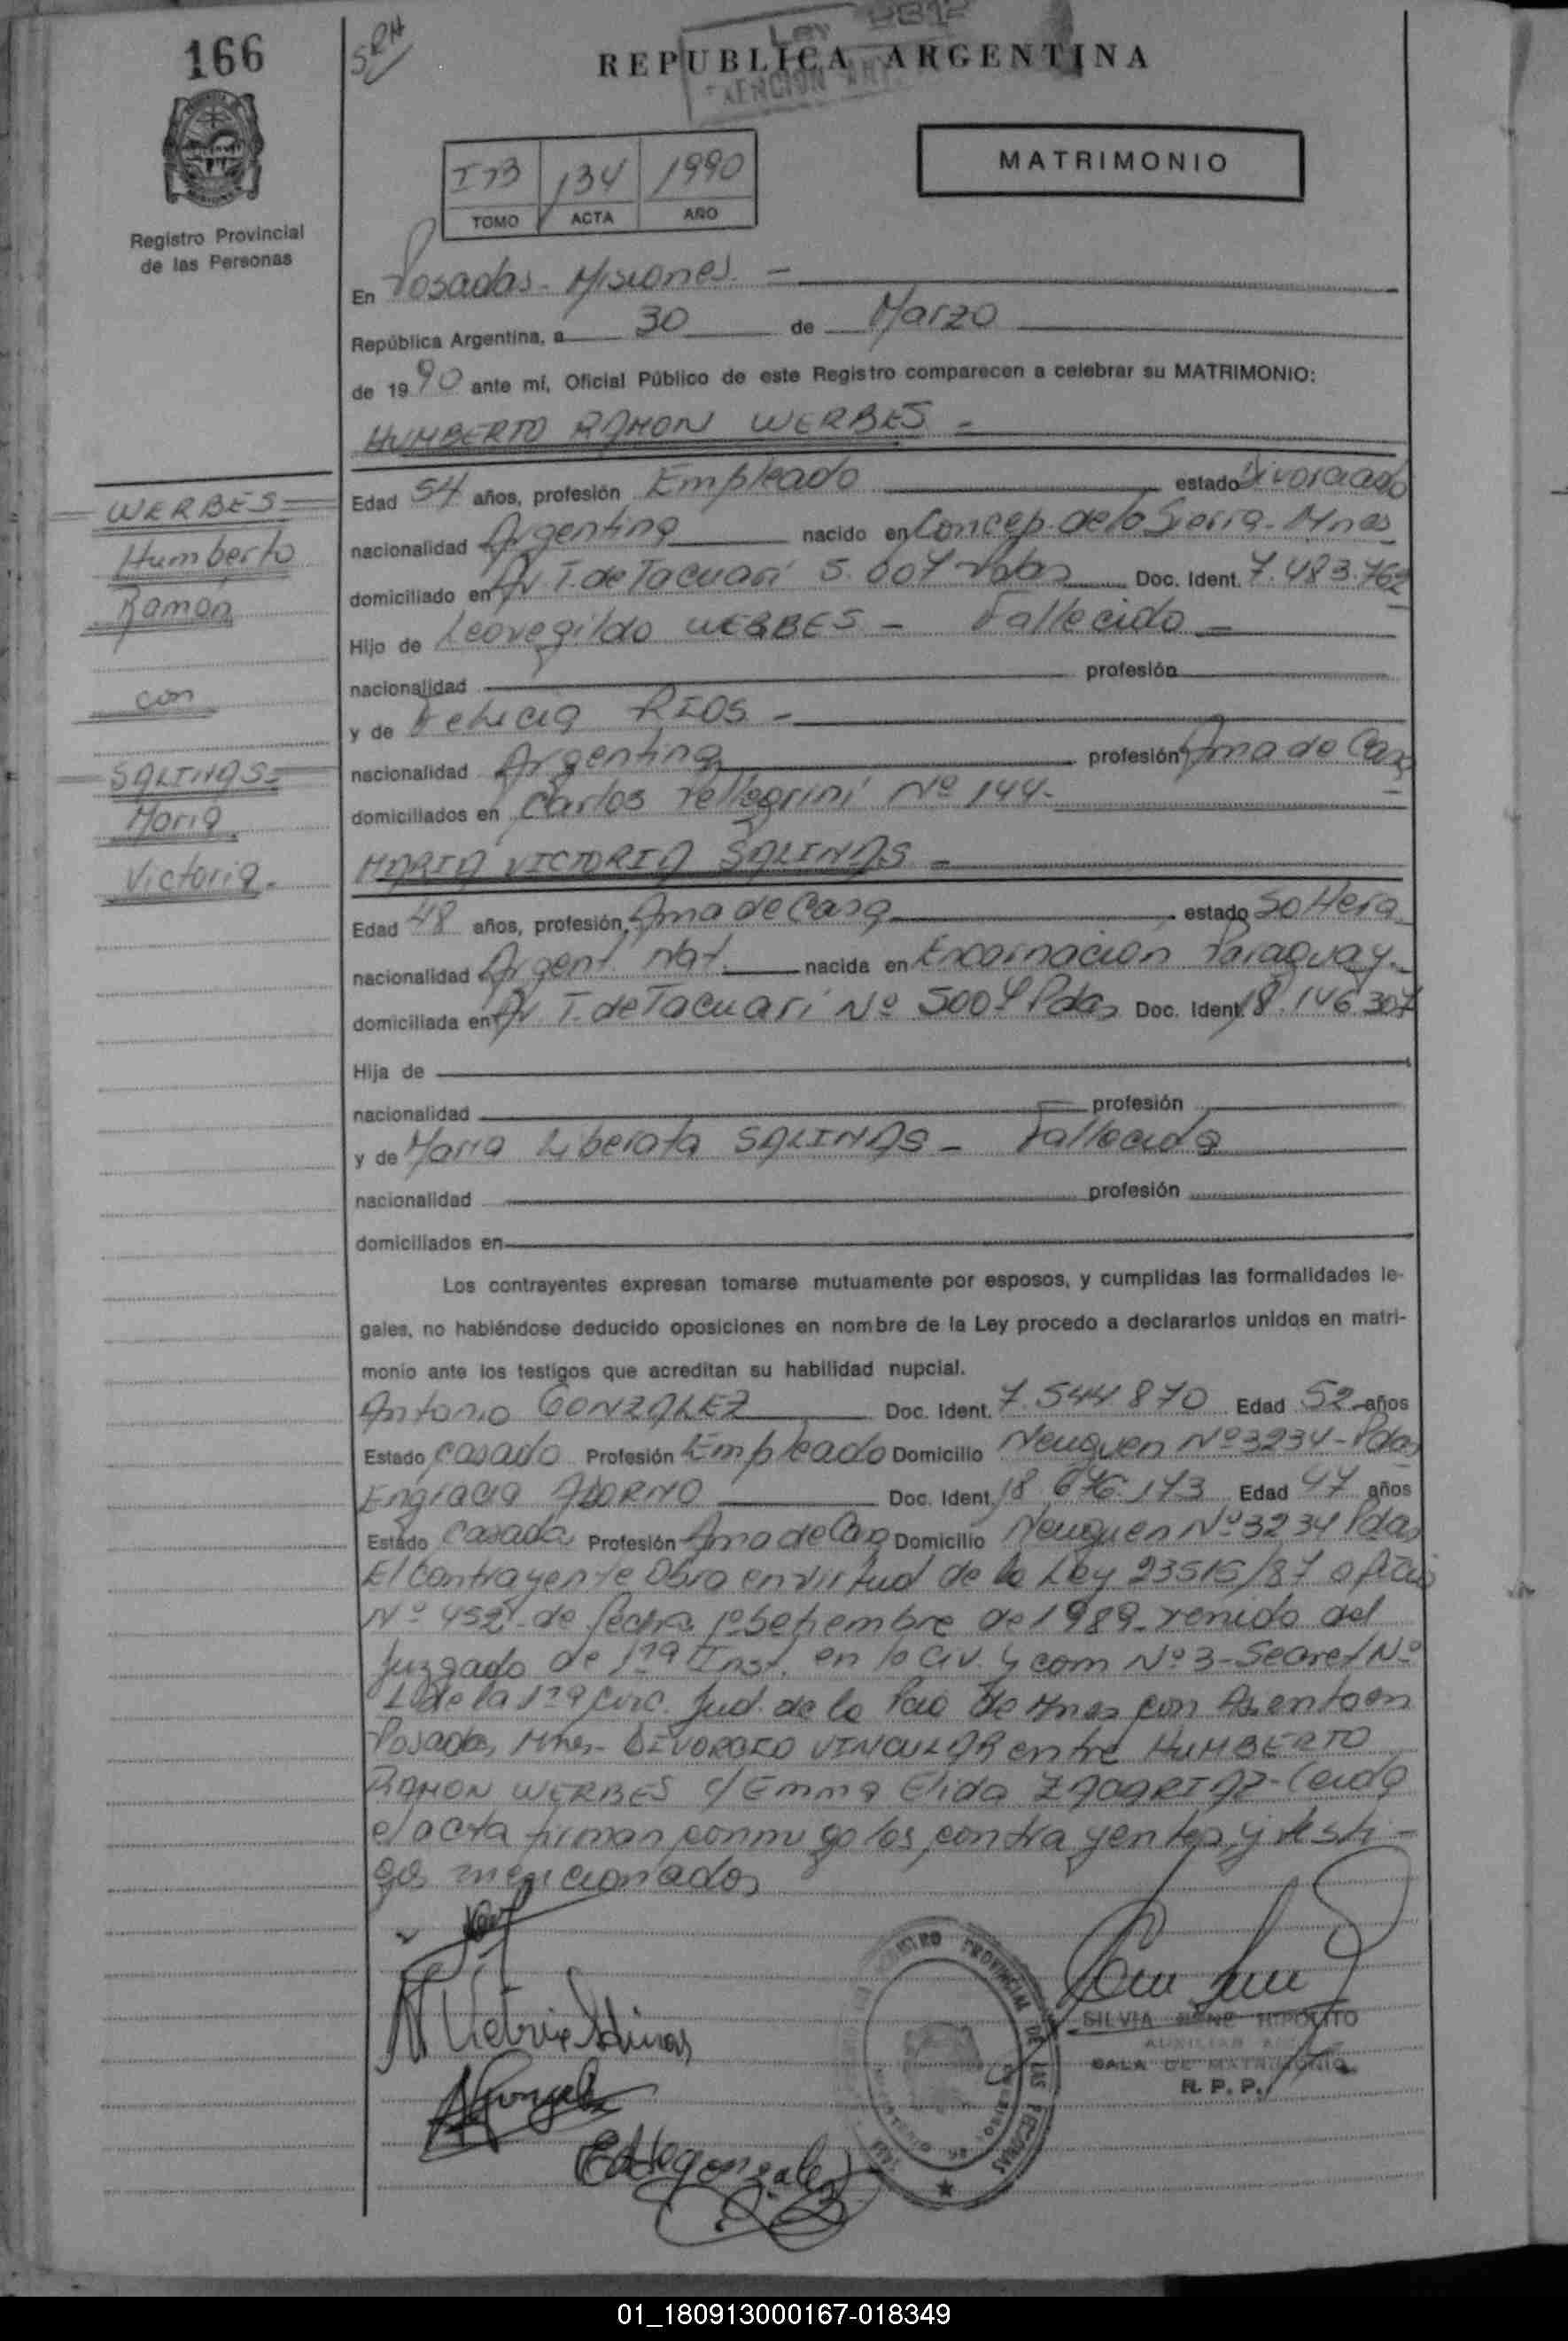 166
SRH
Ley 2312
REPUBLICA ARGENTINA
Registro Provincial
de las Personas
134 1990
TOMO ACTA AÑO
MATRIMONIO
En Posadas - Misiones. -
República Argentina, a 30 de Marzo
de 1990 ante mí, Oficial Público de este Registro comparecen a celebrar su MATRIMONIO:
HUMBERTO RAMON WERBES -
WERBES
Humberto
Ramón
con
SALINAS
Maria
Victoria.
Edad 54 años, profesión Empleado estado Divorciado
nacionalidad Argentina nacido en Concep. de la Sierra - Mnes
domiciliado en Av T. de Tacuari 5.007 Pdas Doc. Ident. 7.483.762
Hijo de Leovegildo WERBES - Fallecido -
nacionalidad profesión
y de Felicia RIOS -
nacionalidad Argentina profesión Ama de Casa
domiciliados en Carlos Pellegrini Nº 144-
MARIA VICTORIA SALINAS -
Edad 48 años, profesión, Ama de Casa estado Soltera
nacionalidad Argent. Nat. nacida en Encarnación Paraguay.
domiciliada en Av T. de Tacuari Nº 5007 Pdas Doc. Ident. 18.146.307
Hija de
nacionalidad profesión
y de Maria Liberata SALINAS - Fallecida
nacionalidad profesión
domiciliados en
Los contrayentes expresan tomarse mutuamente por esposos, y cumplidas las formalidades le-
gales, no habiéndose deducido oposiciones en nombre de la Ley procedo a declararlos unidos en matri-
monio ante los testigos que acreditan su habilidad nupcial.
Antonio GONZALEZ Doc. Ident. 7.544.870 Edad 52 años
Estado Casado Profesión Empleado Domicilio Neuquen Nº 3234 - Pdas
Engracia ADORNO Doc. Ident. 18.676.173 Edad 47 años
Estado Casada Profesión Ama de Casa Domicilio Neuquen Nº 3234 Pdas
El contrayente Obra en virtud de la Ley 23515/87 oficio
Nº 452 de fecha 1º Setiembre de 1989 - venido del
Juzgado de 1ra Inst. en lo Civ. y com Nº 3 - Secret Nº
de la 1ra Circ. Jud. de la Pcia de Mnes con Asiento en
Posadas, Mnes - DIVORCIO VINCULAR entre HUMBERTO
RAMON WERBES c/ Emma Elida - Leida
el acta firman conmigo los contrayentes y testi-
gos mencionados
Victoria Salinas
A Gonzalez
gonzalez
REGISTRO PROVINCIAL DE LAS PERSONAS
SILVIA RENE HIPOLITO
AUXILIAR
SALA DE MATRIMONIO
R. P. P.
01_180913000167-018349